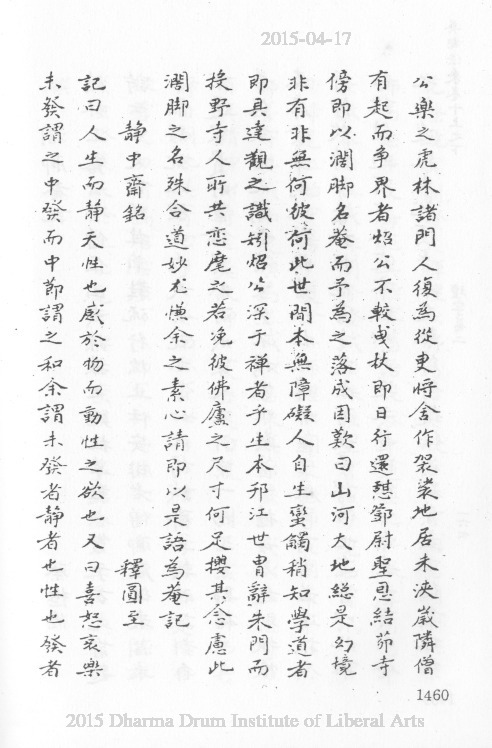 2015-04-17
公樂之虎林諸門人復為從更將舍作袈裟地居未浹歲隣僧
有起而争界者炤公不較曳杖即日行還憇鄧尉聖恩結茆寺
傍即以濶脚名菴而予為之落成因歎曰山河大地縂是幻境
非有非無何彼何此世間本無障礙人自生蠻觸稍知學道者
即具達觀之識矧炤公深于禅者乎生本邗江世冑辭朱門而
投野寺人所共恋麾之若浼彼佛廬之尺寸何足攖其念慮此
濶脚之名殊合道妙尤慊余之素心請即以是語為菴記
静中齋銘
釋圓至
記曰人生而静天性也感於物而動性之欲也又曰喜怒哀樂
未發謂之中發而中節謂之和余謂未發者静者也性也發者
1460
2015 Dharma Drum Institute of Liberal Arts